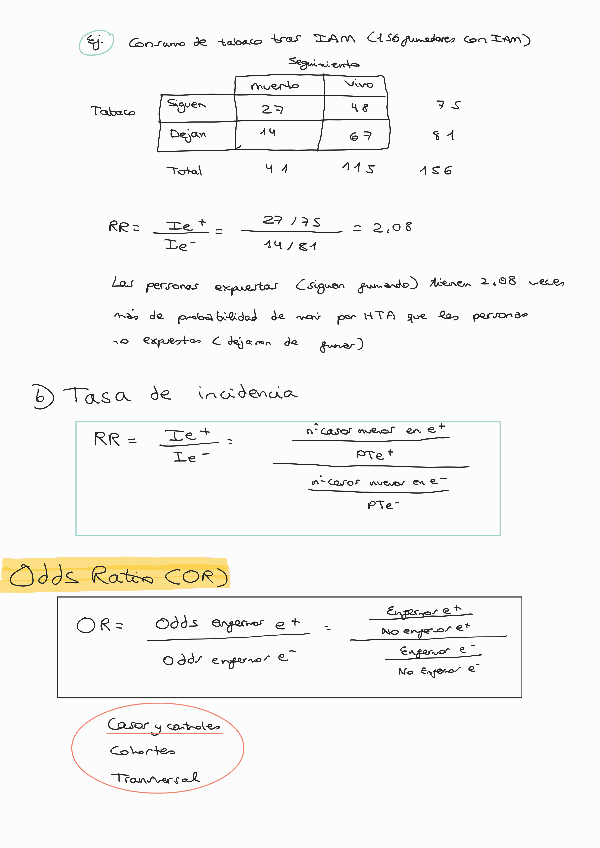 Ej. Consumo de tabaco tras IAM (156 fumadores con IAM)
Seguimiento
muerto vivo
Tabaco Siguen 27 48 75
Dejan 14 67 81
Total 41 115 156
RR = Ie+ / Ie- = 27/75 / 14/81 = 2,08
Las personas expuestas (siguen fumando) tienen 2,08 veces
más de probabilidad de morir por HTA que las personas
no expuestas (dejaron de fumar)
b) Tasa de incidencia
RR = Ie+ / Ie- = nº casos nuevos en e+ / PTe+ / nº casos nuevos en e- / PTe-
Odds Ratio (OR)
OR = Odds enfermos e+ / Odds enfermos e- = Enfermos e+ / No enfermos e+ / Enfermos e- / No Enfermos e-
Casos y controles
Cohortes
Tranversal